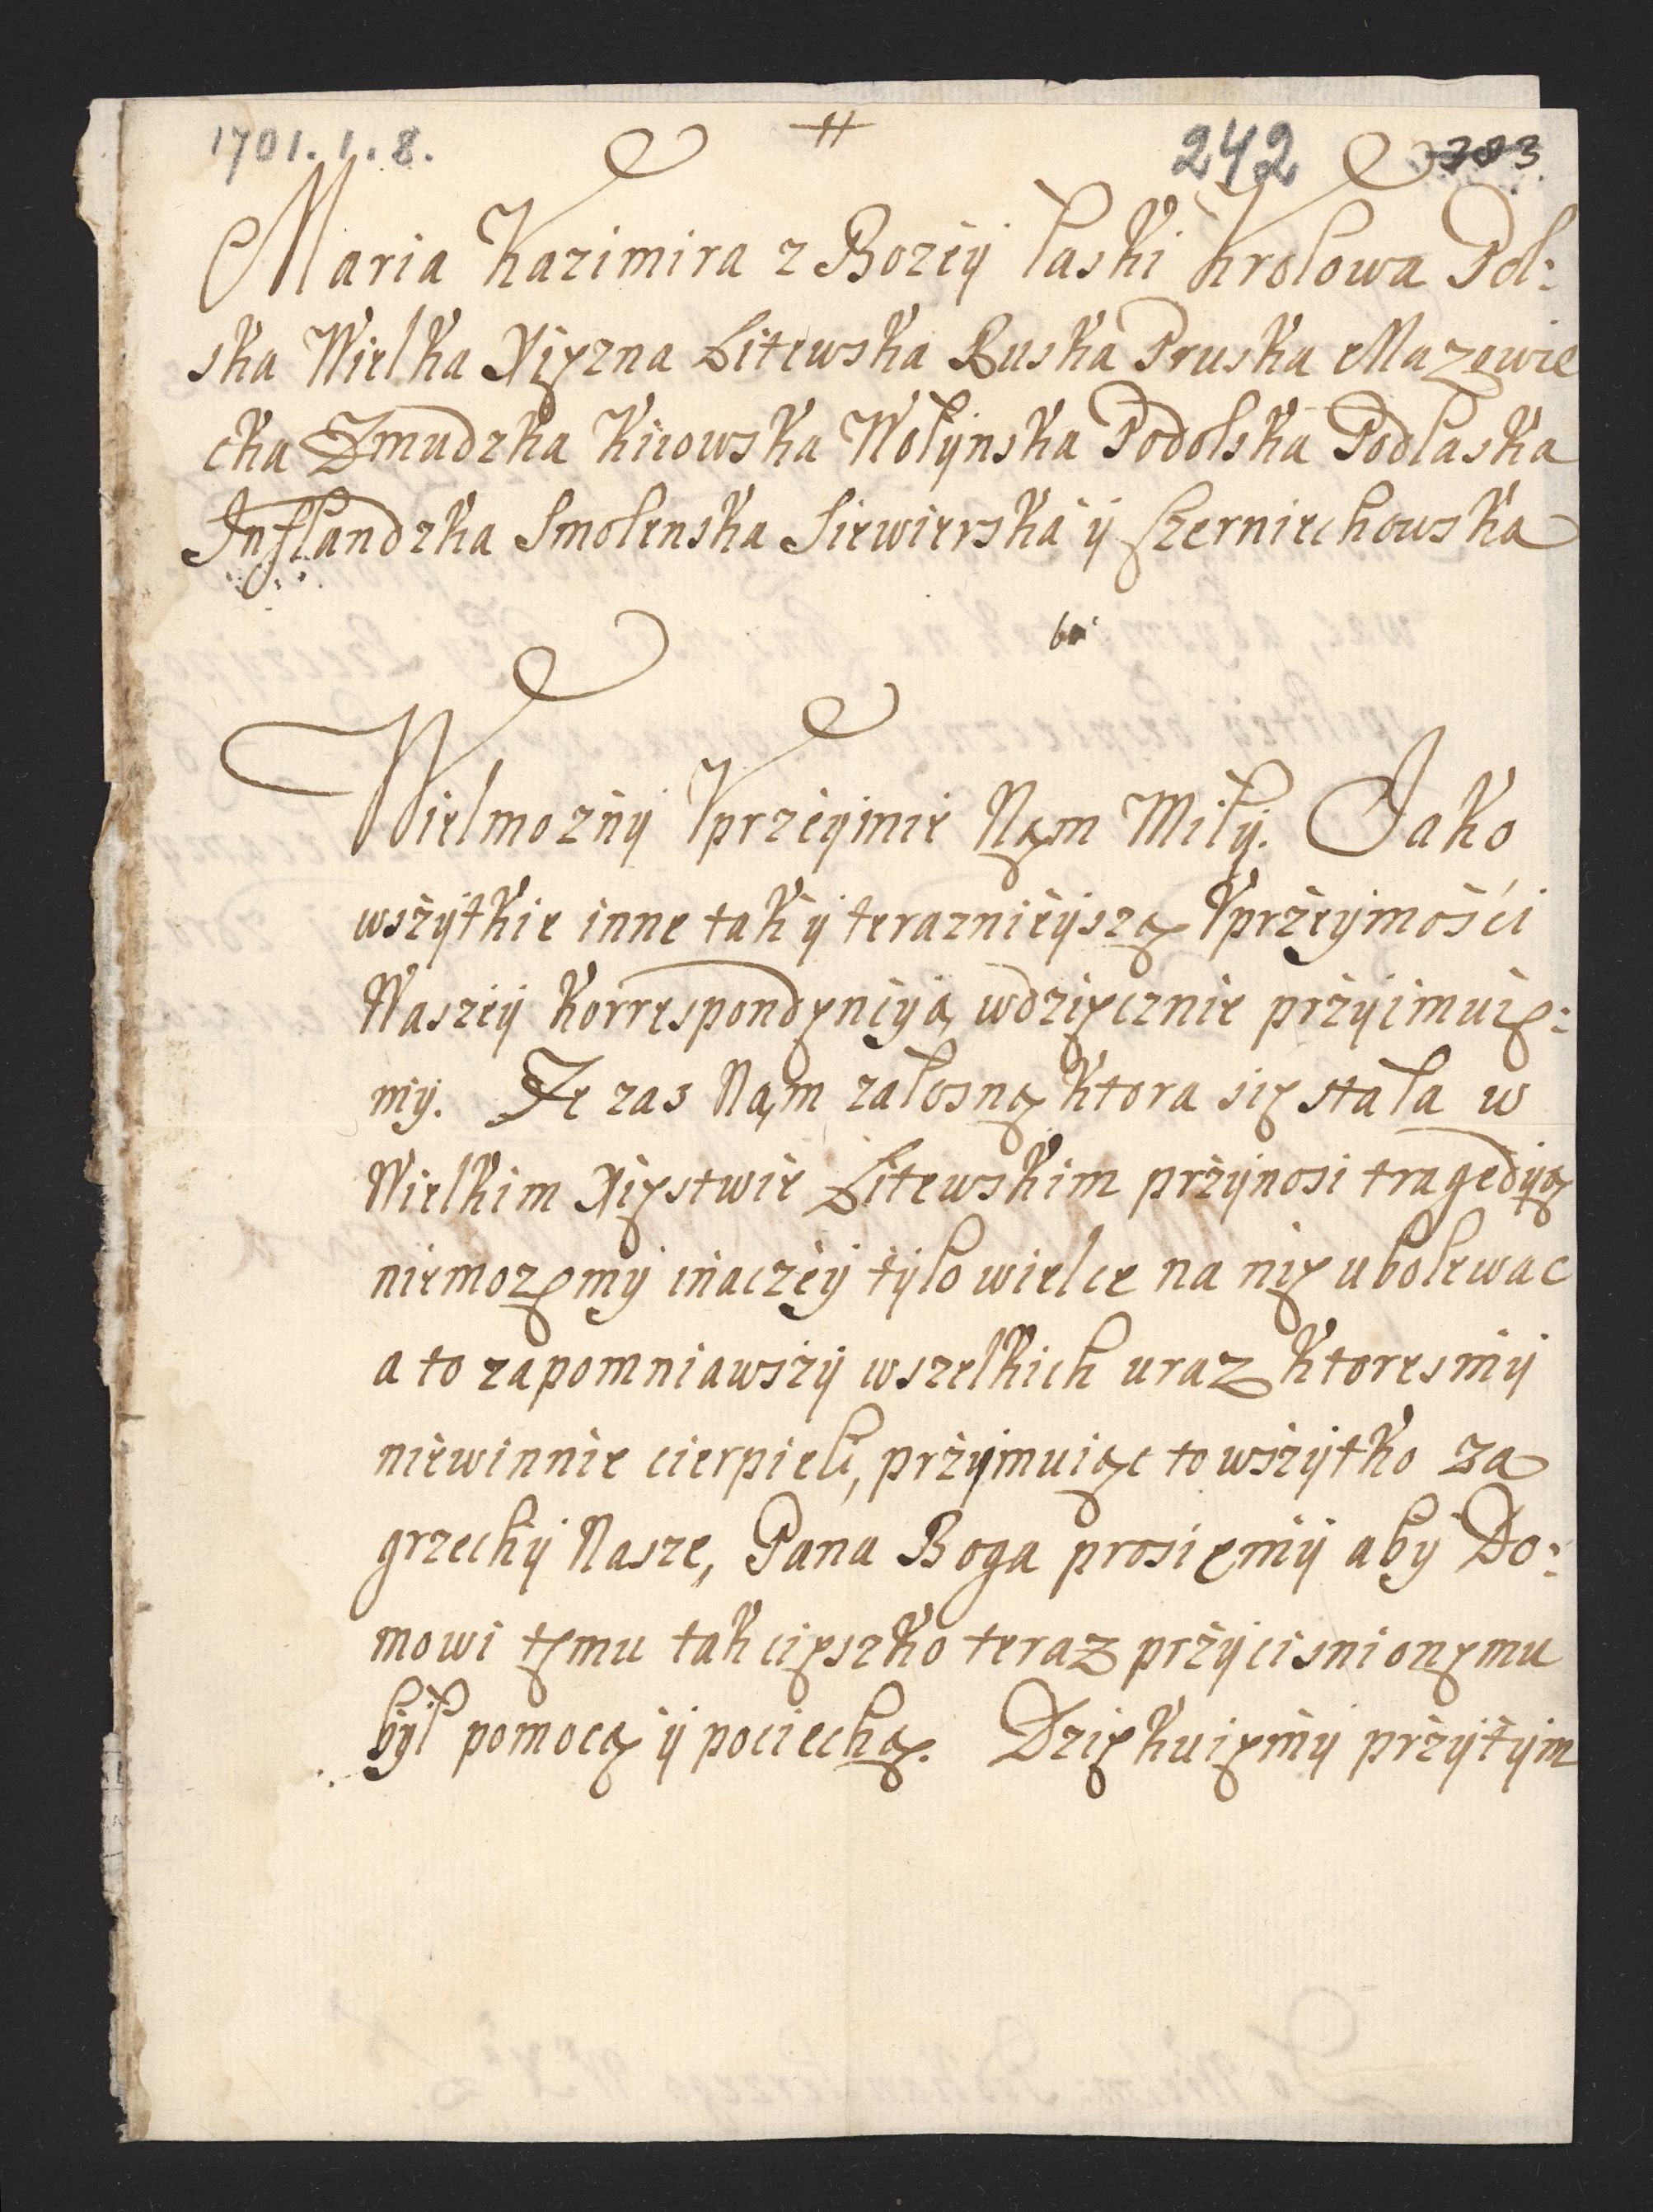 1701.1.8.
242
303
Maria Kazimira z Bozey Łaski Krolowa Pol:
ska Wielka Xięzna Litewska Ruska Pruska Mazowie
cka Zmudzka Kiiowska Wołynska Podolska Podlaska
Inflandzka Smolenska Siewierska ÿ Czerniechowska
Wielmoznÿ Vprzeÿmie Nąm Miłÿ. Jako
wszÿtkie inne tak ÿ teraznieÿszą Vprzeÿmośći
Waszeÿ Korrespondęncÿą wdzięcznie przÿimuię:
mÿ. Ze zas Nąm załosną ktora się stała w
Wielkim Xięstwie Litewskim przÿnosi tragedÿą
niemozęmÿ inaczeÿ tÿlo wielce na nię ubolewac
a to zapomniawszÿ wszelkich uraz ktoresmÿ
niewinnie cierpieli, przÿjmuiąc to wszÿtko za
grzechÿ Nasze, Pana Boga prosięmÿ abÿ Do:
mowi tęmu tak cięszko teraz przÿcisnionęmu
bÿł pomocą ÿ pociechą. Dziękuięmÿ przÿtÿm